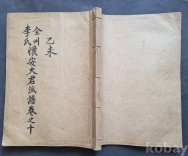 乙未
全州
李氏懷安大君派譜卷之十